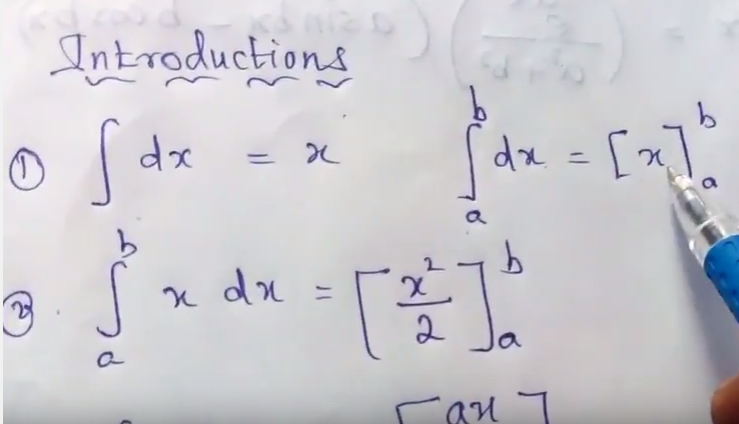 Introductions
① ∫ dx = x    ∫ₐᵇ dx = [x]ₐᵇ
② ∫ₐᵇ x dx = [x²/2]ₐᵇ
[ax]